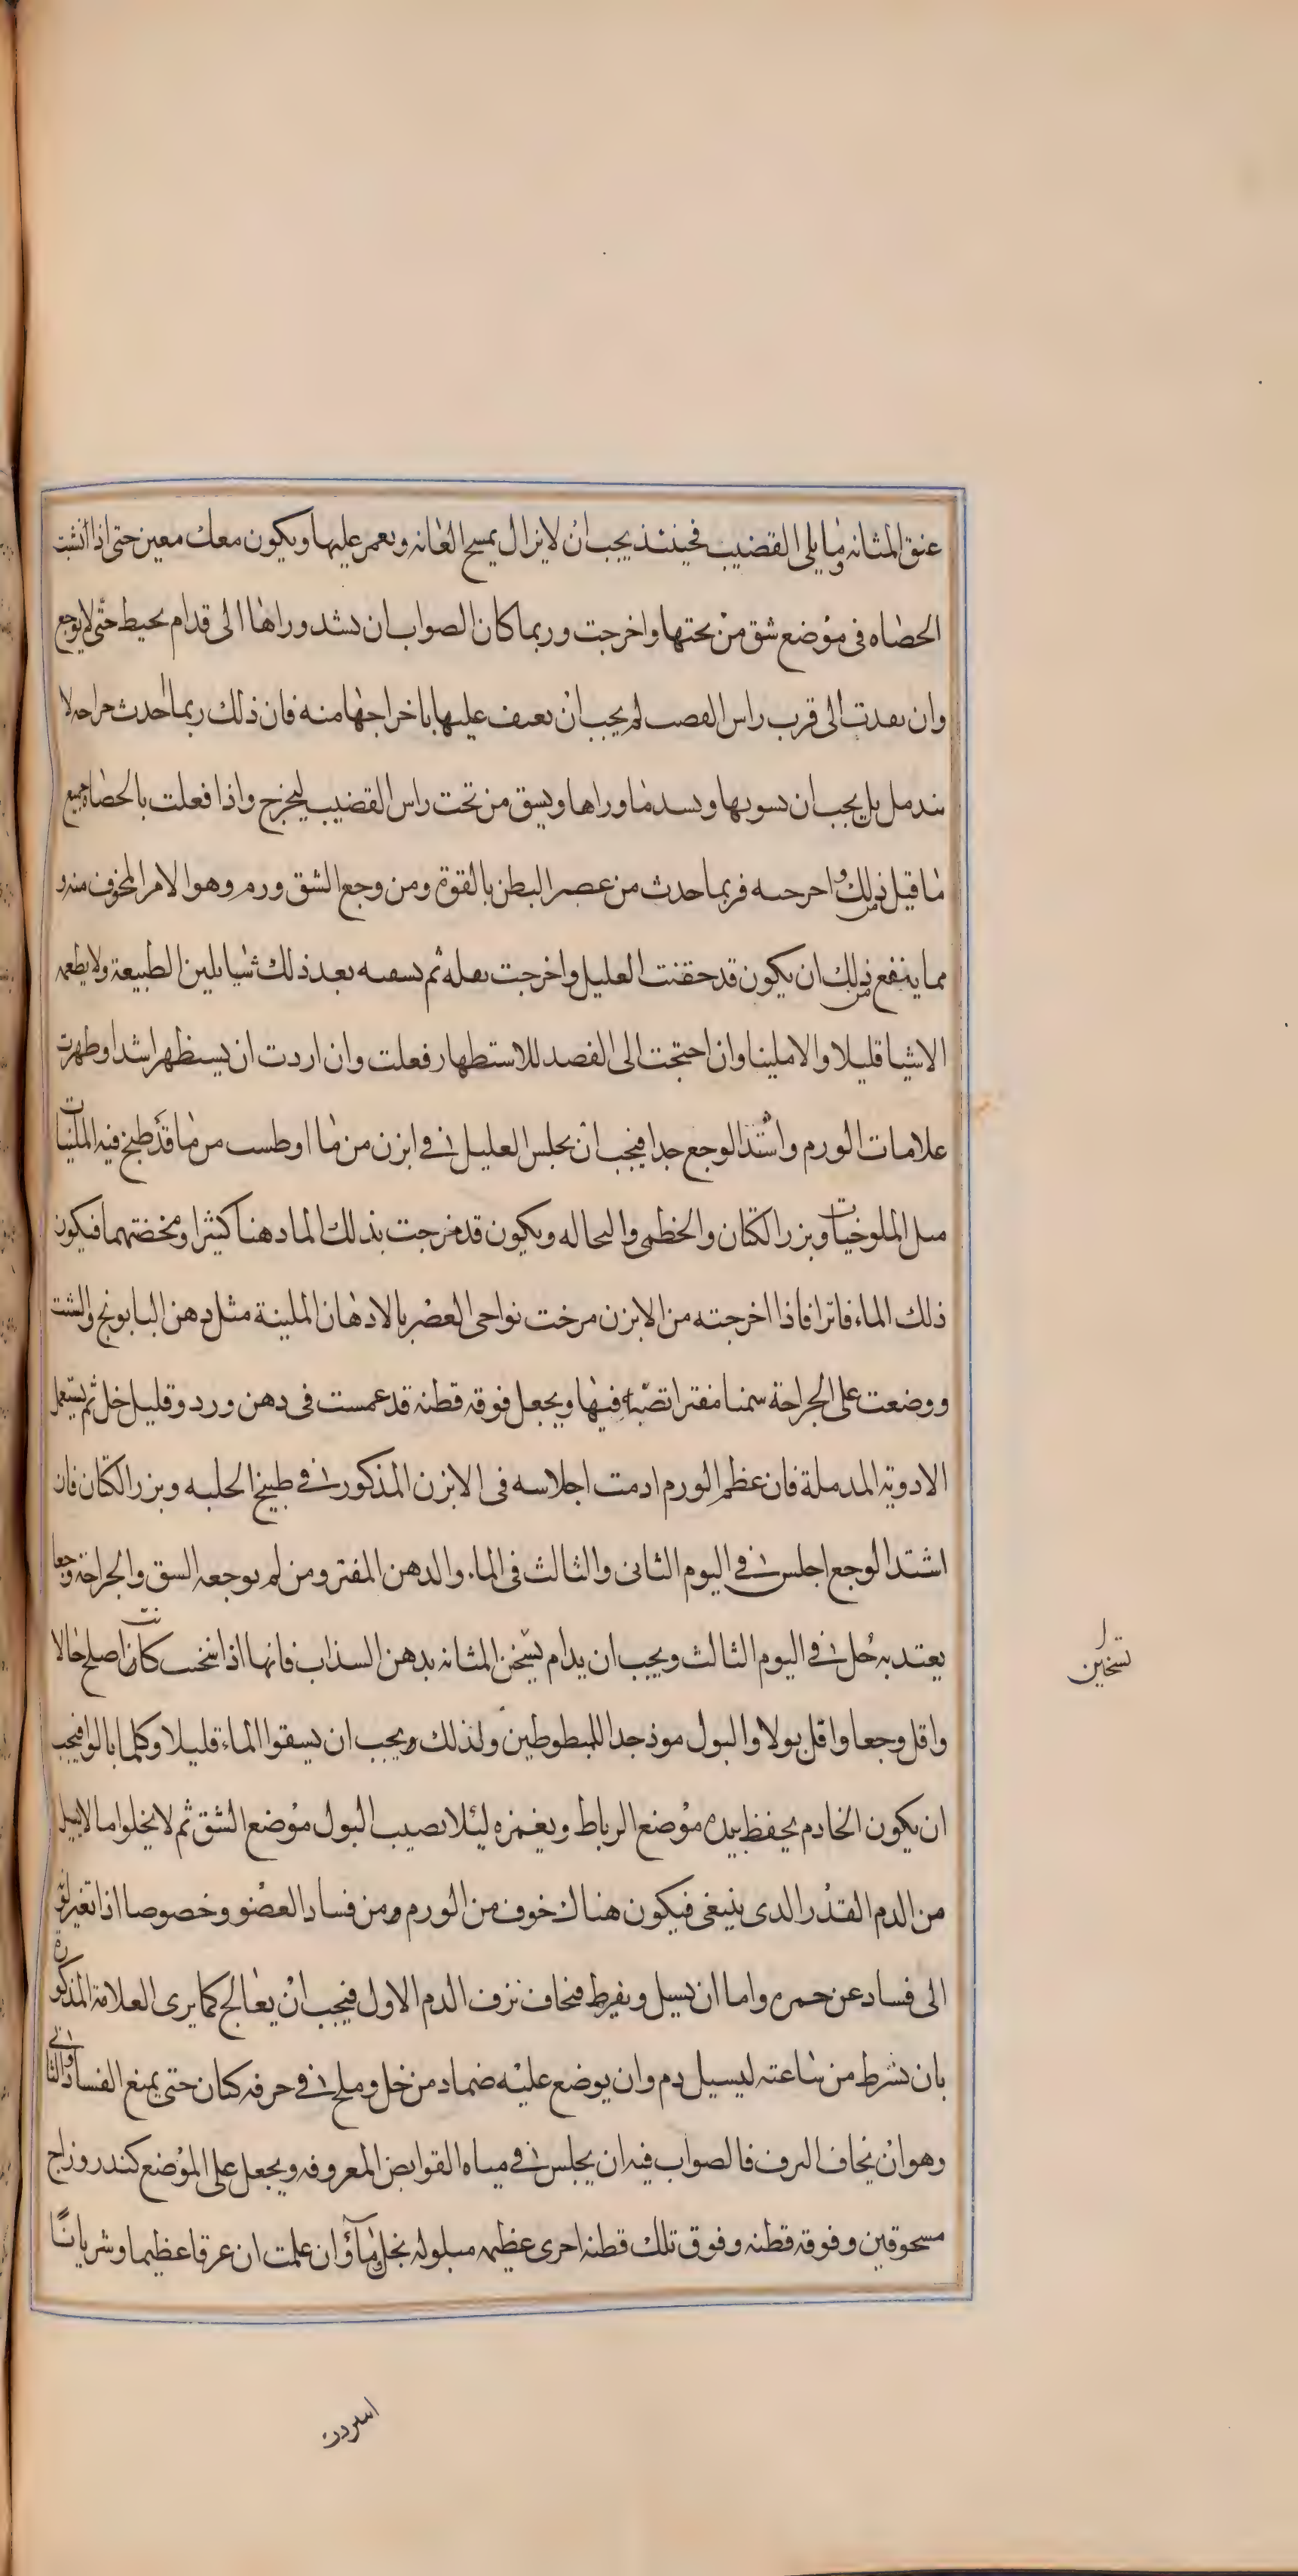 عنق المثانه وما يلى القضيب فحينئذ يجب ان لا يزال يمسح العانه ويعمر عليها ويكون معك معين حتى اذا أنشبت
الحصاه فى موضع شق من تحتها واخرجت وربما كان الصواب ان يشد وراها الى قدام بحيط حتى لا يوجع
وان بعدت الى قرب راس القصب لم يجب ان يعنف عليها باخراجها منه فان ذلك ربما احدث جراحه لا
يندمل بل يجب ان يسويها ويسد ما وراها ويسق من تحت راس القضيب ليخرج واذا فعلت بالحصاه جميع
ما قيل ذلك واخرجته فربما حدث من عصر البطن بالقوة ومن وجع الشق ورم وهو الامر المخوف منه و
مما ينفع من ذلك ان يكون قد حقنت العليل واخرجت ثفله ثم تسقيه بعد ذلك شيا يلين الطبيعة ولا يطعمه
الاشيا قليلا والا ملينا وان احتجت الى الفصد للاستطهار فعلت وان اردت ان يستظهر اشد او ظهرت
علامات الورم واشتد الوجع جدا فيجب ان يجلس العليل فى ابزن من ما او طست من ما قد طبخ فيه الملينات
مثل الملوخيات وبزر الكتان والخطمى والنخاله ويكون قد مزجت بذلك الما دهنا كثيرا ومخضتهما فيكون
ذلك الماء فاترا فاذا اخرجته من الابزن مرخت نواحى العضو بالادهان الملينة مثل دهن البابونج والشبت
ووضعت على الجراحة سمنا مفترا تصبه فيها ويجعل فوقه قطنه قد عمست فى دهن ورد وقليل خل ثم يستعمل
الادوية المدملة فان عظم الورم ادمت اجلاسه فى الابزن المذكور فى طبيخ الحلبه وبزر الكتان فان
اشتد الوجع اجلس فى اليوم الثانى والثالث فى الماء والدهن المفتر ومن لم يوجعه السق والجراحة وجعا
يعتد به حل فى اليوم الثالث ويجب ان يدام يسخن المثانه بدهن السذاب فانها اذا سخنت كانت اصلح حالا
تسخين
واقل وجعا واقل بولا والبول موذ جدا للمبطوطين ولذلك ويجب ان يسقوا الماء قليلا وكلما بالوا فيجب
ان يكون الخادم يحفظ بيده موضع الرباط ويغمزه لئلا يصيب البول موضع الشق ثم لا يخلوا ما لا يسيل
من الدم القدر الدى ينبغى فيكون هناك خوف من الورم ومن فساد العضو وخصوصا اذا تغير لونه
الى فساد عن حمره واما ان يسيل ويفرط فيخاف نزف الدم الاول فيجب ان يعالج كما يرى العلامة المذكورة
بان تشرط من ساعته ليسيل دم وان يوضع عليه ضماد من خل وملح فى حرفه كتان حتى يمنع الفساد والثانى
وهو ان يخاف النزف فالصواب فيه ان يجلس فى مياه القوابض المعروفه ويجعل على الموضع كندر وزاج
مسحوقين وفوقه قطنه وفوق تلك قطنه اخرى عظيمه مبلوله بخل وماء وان علمت ان عرقا عظيما وشريانا